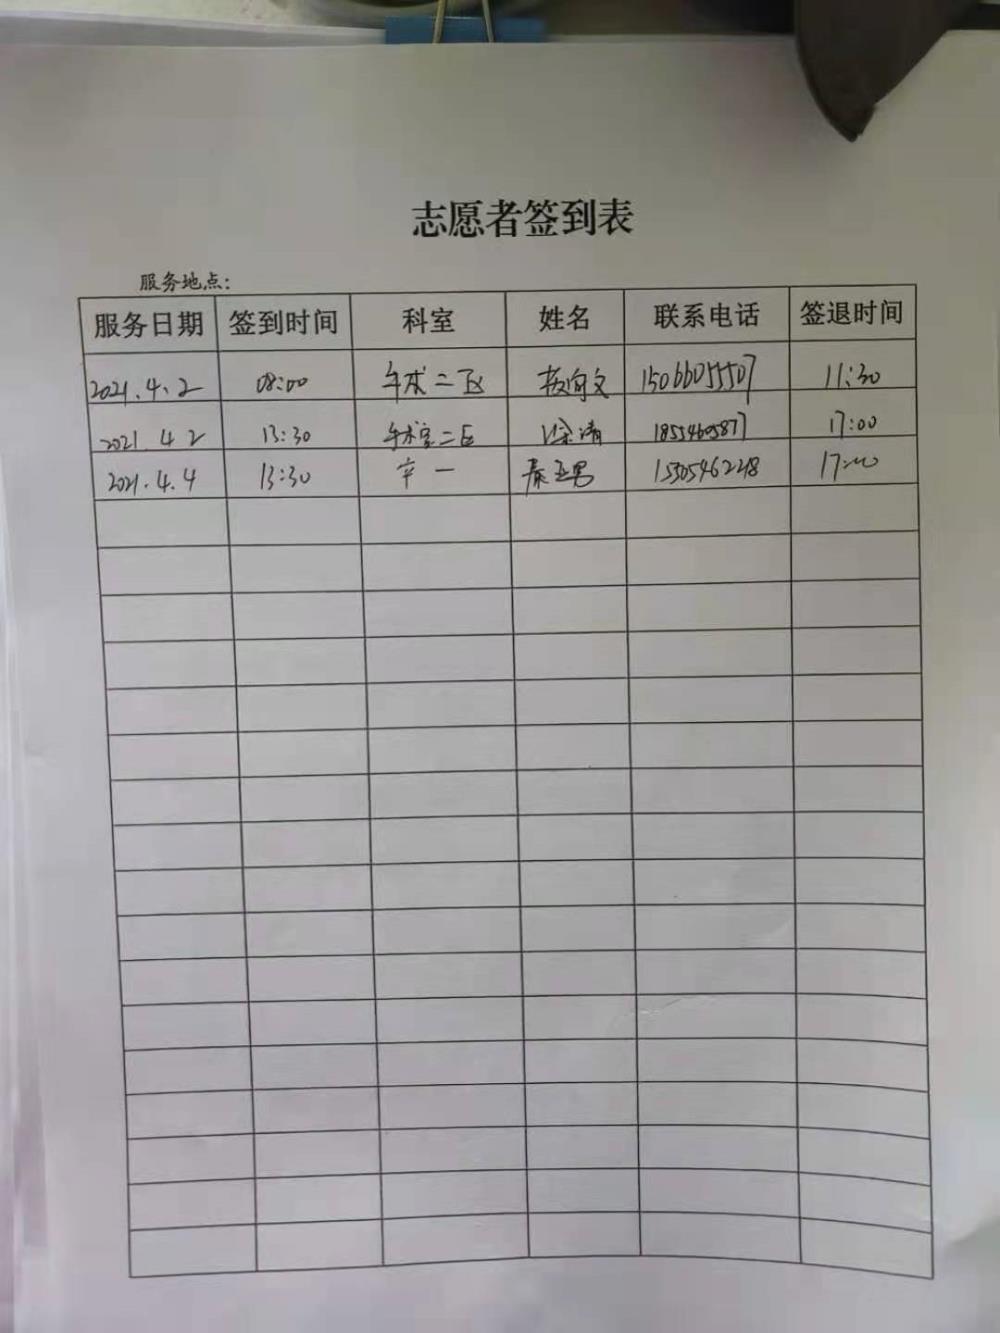 志愿者签到表
服务地点:
服务日期 签到时间 科室 姓名 联系电话 签退时间
2021.4.2 08:00 手术二区 向文 15066055507 11:30
2021.4.2 13:30 手术室二区 徐清 17:00
2021.4.4 13:30 一 秦亚男 15305462248 17:00